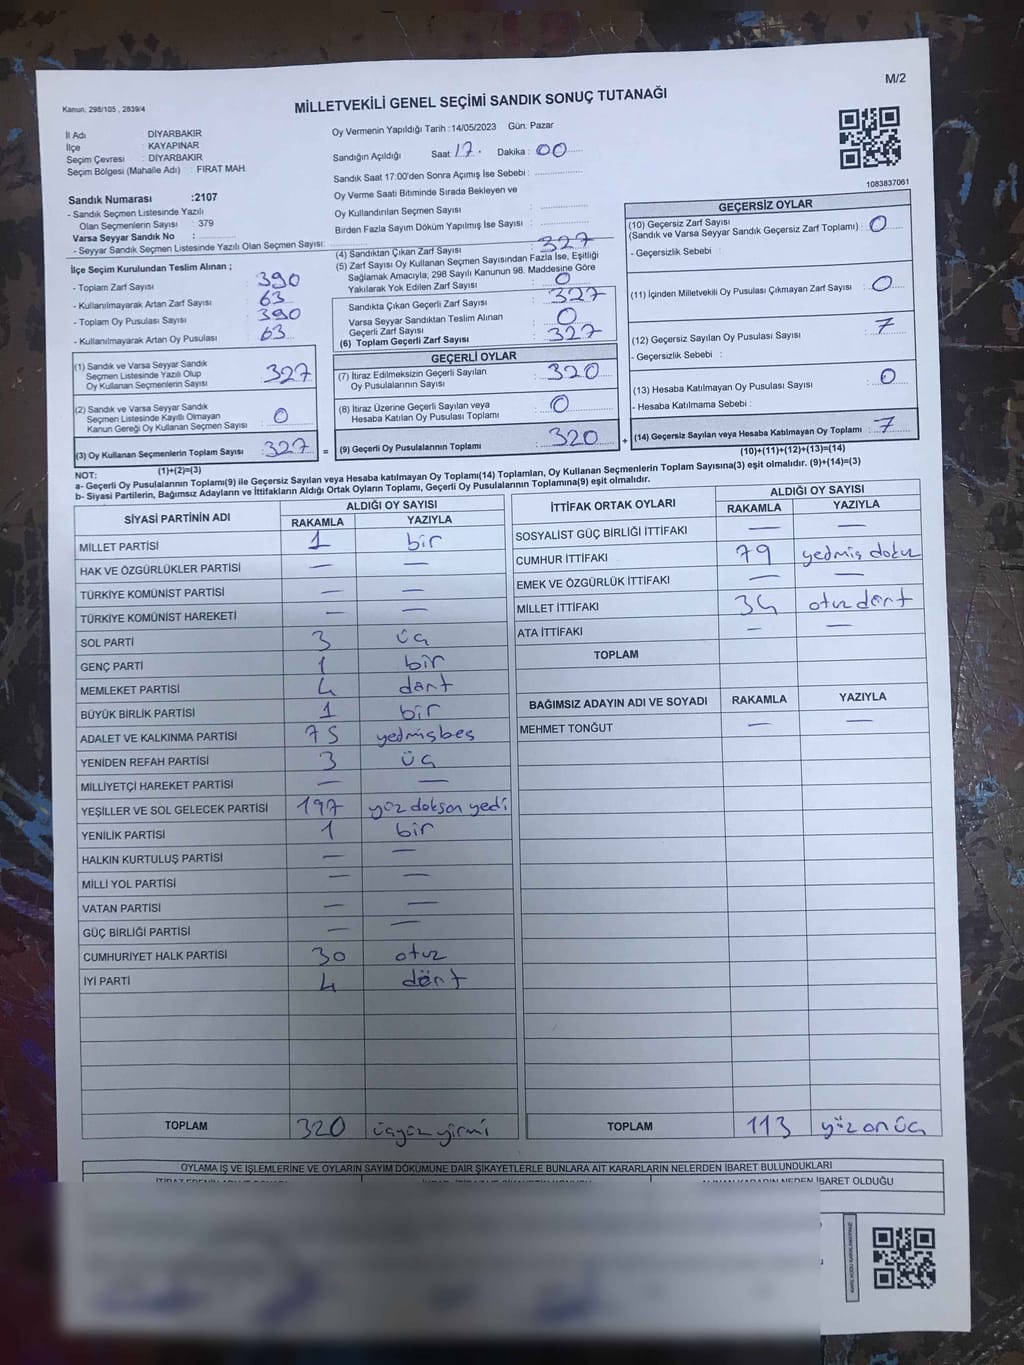 M/2
Kanun, 298/105 , 2839/4
MİLLETVEKİLİ GENEL SEÇİMİ SANDIK SONUÇ TUTANAĞI
İl Adı : DİYARBAKIR
İlçe : KAYAPINAR
Seçim Çevresi : DİYARBAKIR
Seçim Bölgesi (Mahalle Adı) : FIRAT MAH.
Oy Vermenin Yapıldığı Tarih :14/05/2023 Gün: Pazar
Sandığın Açıldığı Saat : 17. Dakika : 00
Sandık Saat 17:00'den Sonra Açımış İse Sebebi :
Oy Verme Saati Bitiminde Sırada Bekleyen ve
Oy Kullandırılan Seçmen Sayısı :
Birden Fazla Sayım Döküm Yapılmış İse Sayısı :
1083837061
Sandık Numarası :2107
- Sandık Seçmen Listesinde Yazılı
Olan Seçmenlerin Sayısı : 379
Varsa Seyyar Sandık No :
- Seyyar Sandık Seçmen Listesinde Yazılı Olan Seçmen Sayısı:
İlçe Seçim Kurulundan Teslim Alınan ;
- Toplam Zarf Sayısı : 390
- Kullanılmayarak Artan Zarf Sayısı : 63
- Toplam Oy Pusulası Sayısı : 390
- Kullanılmayarak Artan Oy Pusulası : 63
(1) Sandık ve Varsa Seyyar Sandık
Seçmen Listesinde Yazılı Olup
Oy Kullanan Seçmenlerin Sayısı : 327
(2) Sandık ve Varsa Seyyar Sandık
Seçmen Listesinde Kayıtlı Olmayan
Kanun Gereği Oy Kullanan Seçmen Sayısı : 0
(3) Oy Kullanan Seçmenlerin Toplam Sayısı : 327
(1)+(2)=(3)
(4) Sandıktan Çıkan Zarf Sayısı : 327
(5) Zarf Sayısı Oy Kullanan Seçmen Sayısından Fazla İse, Eşitliği
Sağlamak Amacıyla; 298 Sayılı Kanunun 98. Maddesine Göre
Yakılarak Yok Edilen Zarf Sayısı : 0
Sandıkta Çıkan Geçerli Zarf Sayısı : 327
Varsa Seyyar Sandıktan Teslim Alınan
Geçerli Zarf Sayısı : 0
(6) Toplam Geçerli Zarf Sayısı : 327
GEÇERLİ OYLAR
(7) İtiraz Edilmeksizin Geçerli Sayılan
Oy Pusulalarının Sayısı : 320
(8) İtiraz Üzerine Geçerli Sayılan veya
Hesaba Katılan Oy Pusulası Toplamı : 0
= (9) Geçerli Oy Pusulalarının Toplamı : 320
GEÇERSİZ OYLAR
(10) Geçersiz Zarf Sayısı
(Sandık ve Varsa Seyyar Sandık Geçersiz Zarf Toplamı) : 0
- Geçersizlik Sebebi :
(11) İçinden Milletvekili Oy Pusulası Çıkmayan Zarf Sayısı : 0
(12) Geçersiz Sayılan Oy Pusulası Sayısı : 7
- Geçersizlik Sebebi :
(13) Hesaba Katılmayan Oy Pusulası Sayısı : 0
- Hesaba Katılmama Sebebi :
+ (14) Geçersiz Sayılan veya Hesaba Katılmayan Oy Toplamı : 7
(10)+(11)+(12)+(13)=(14)
NOT:
a- Geçerli Oy Pusulalarının Toplamı(9) ile Geçersiz Sayılan veya Hesaba katılmayan Oy Toplamı(14) Toplamları, Oy Kullanan Seçmenlerin Toplam Sayısına(3) eşit olmalıdır. (9)+(14)=(3)
b- Siyasi Partilerin, Bağımsız Adayların ve İttifakların Aldığı Ortak Oyların Toplamı, Geçerli Oy Pusulalarının Toplamına(9) eşit olmalıdır.
SİYASİ PARTİNİN ADI ALDIĞI OY SAYISI
RAKAMLA YAZIYLA
MİLLET PARTİSİ 1 bir
HAK VE ÖZGÜRLÜKLER PARTİSİ — —
TÜRKİYE KOMÜNİST PARTİSİ — —
TÜRKİYE KOMÜNİST HAREKETİ — —
SOL PARTİ 3 üç
GENÇ PARTİ 1 bir
MEMLEKET PARTİSİ 4 dört
BÜYÜK BİRLİK PARTİSİ 1 bir
ADALET VE KALKINMA PARTİSİ 75 yedmişbeş
YENİDEN REFAH PARTİSİ 3 üç
MİLLİYETÇİ HAREKET PARTİSİ — —
YEŞİLLER VE SOL GELECEK PARTİSİ 197 yüz doksan yedi
YENİLİK PARTİSİ 1 bir
HALKIN KURTULUŞ PARTİSİ — —
MİLLİ YOL PARTİSİ — —
VATAN PARTİSİ — —
GÜÇ BİRLİĞİ PARTİSİ — —
CUMHURİYET HALK PARTİSİ 30 otuz
İYİ PARTİ 4 dört
TOPLAM 320 üçyüz yirmi
İTTİFAK ORTAK OYLARI ALDIĞI OY SAYISI
RAKAMLA YAZIYLA
SOSYALİST GÜÇ BİRLİĞİ İTTİFAKI — —
CUMHUR İTTİFAKI 79 yedmiş dokuz
EMEK VE ÖZGÜRLÜK İTTİFAKI — —
MİLLET İTTİFAKI 34 otuz dört
ATA İTTİFAKI — —
TOPLAM
BAĞIMSIZ ADAYIN ADI VE SOYADI RAKAMLA YAZIYLA
MEHMET TONĞUT — —
TOPLAM 113 yüz on üç
OYLAMA İŞ VE İŞLEMLERİNE VE OYLARIN SAYIM DÖKÜMÜNE DAİR ŞİKAYETLERLE BUNLARA AİT KARARLARIN NELERDEN İBARET BULUNDUKLARI
NEDEN İBARET OLDUĞU